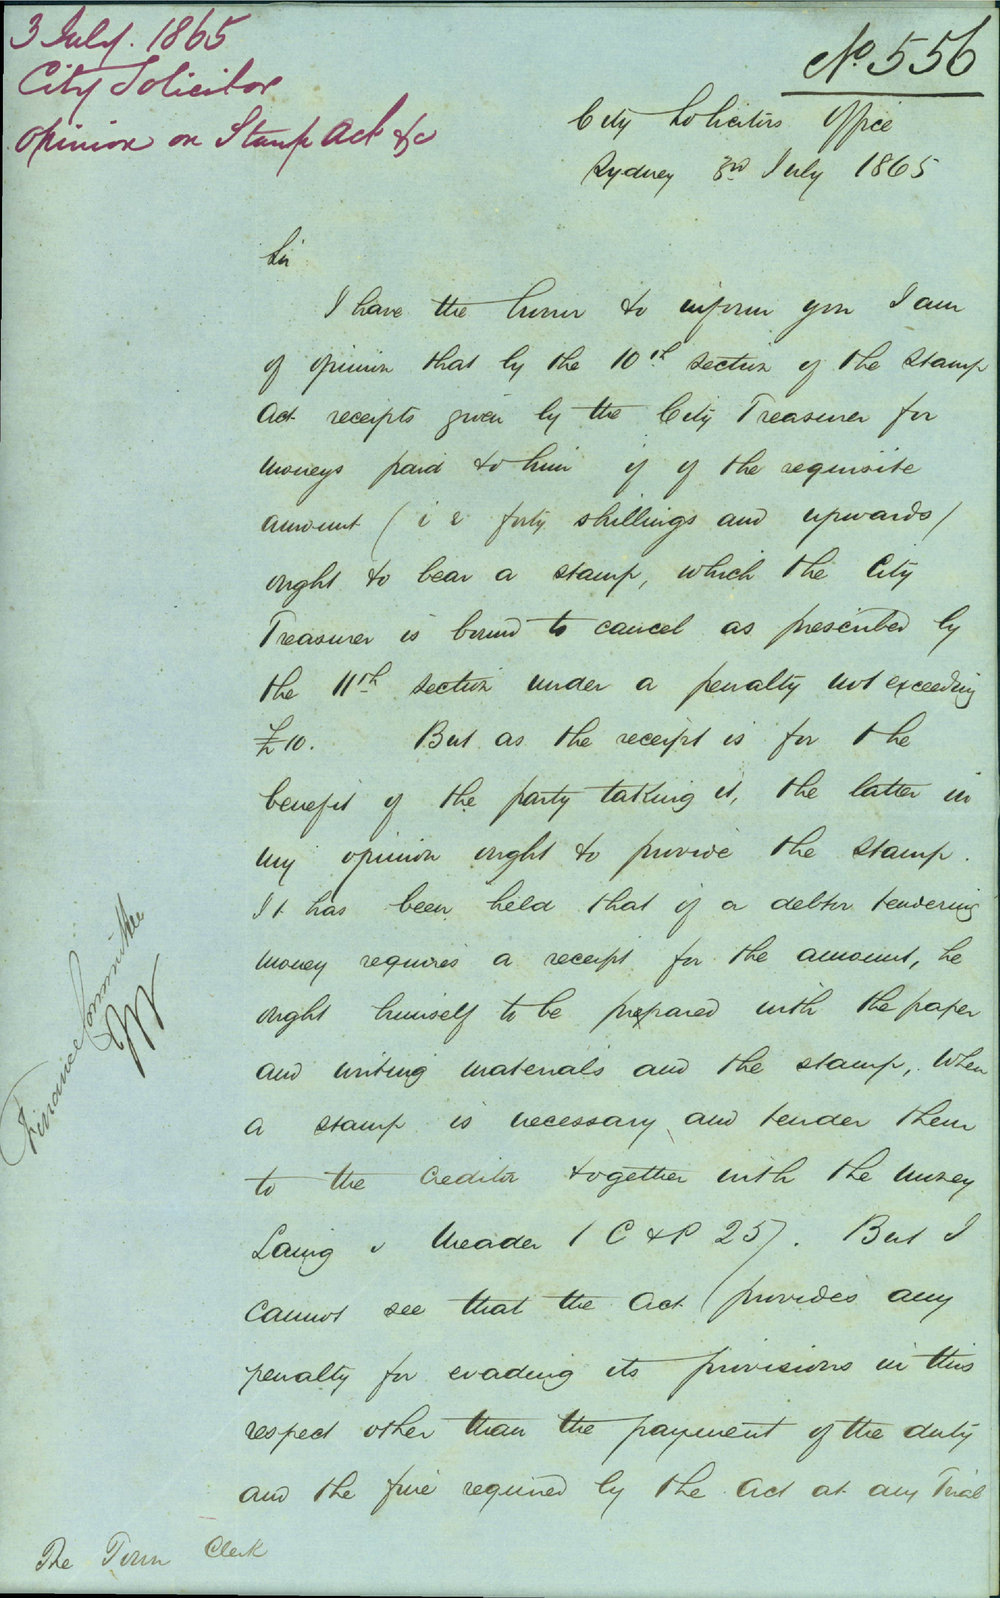 3 July. 1865
City Solicitor
Opinion on Stamp Act &c
No. 556
City Solicitors Office
Sydney 3rd July 1865
Sir
I have the honor to inform you I am
of opinion that by the 10th section of the Stamp
Act receipts given by the City Treasurer for
moneys paid to him if of the requisite
amount (i e forty shillings and upwards)
ought to bear a stamp, which the City
Treasurer is bound to cancel as prescribed by
the 11th section under a penalty not exceeding
£10. But as the receipt is for the
benefit of the party taking it, the latter in
my opinion ought to provide the Stamp.
It has been held that if a debtor tendering
money requires a receipt for the amount, he
ought himself to be prepared with the paper
and writing materials and the stamp, when
a stamp is necessary and tender them
to the Creditor together with the money
Laing v Meader 1 C & P 257. But I
cannot see that the Act provides any
penalty for evading its provisions in this
respect other than the payment of the duty
and the fine required by the Act at any Trial
Finance Committee
The Town Clerk